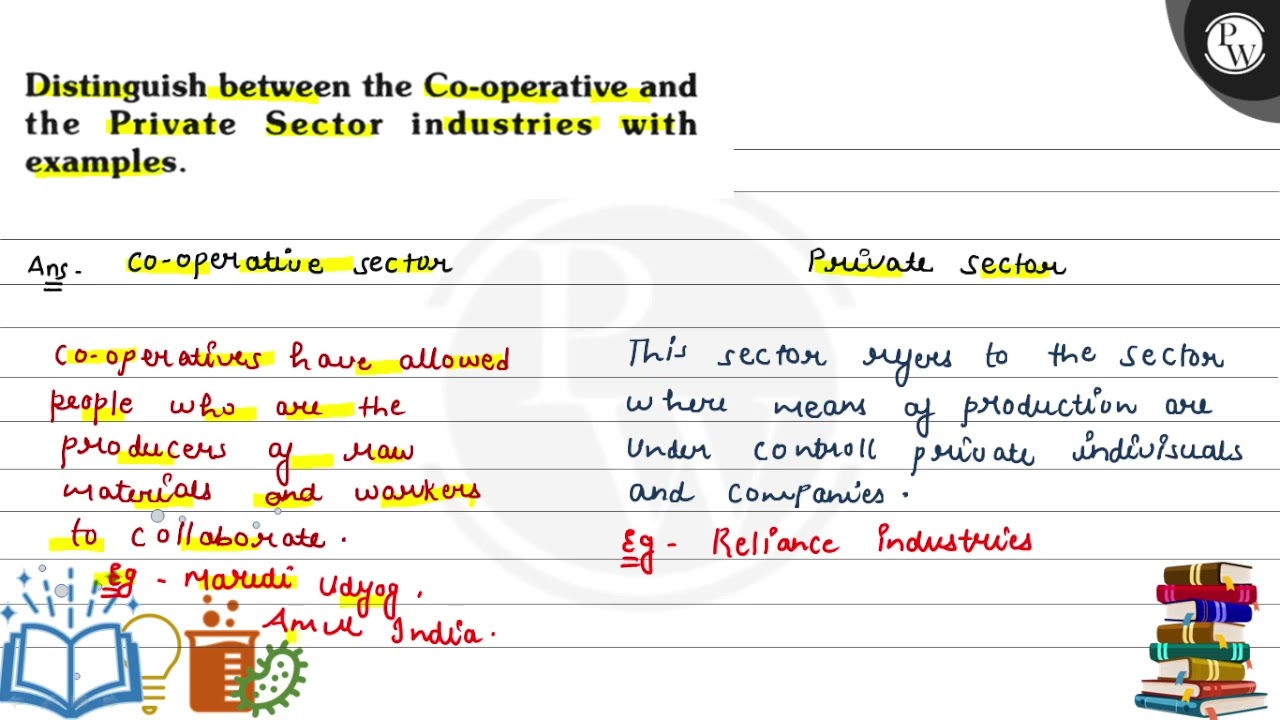 P
W
Distinguish between the Co-operative and
the Private Sector industries with
examples.
Ans. co-operative sector
Private sector
Co-operatives have allowed
people who are the
producers of raw
materials and workers
to collaborate.
Eg - Marudi Udyog.
Amul India.
This sector refers to the sector
where means of production are
Under controll private indivisuals
and companies.
Eg - Reliance industries